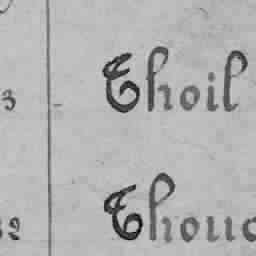 3 Thoil
32 Thouc